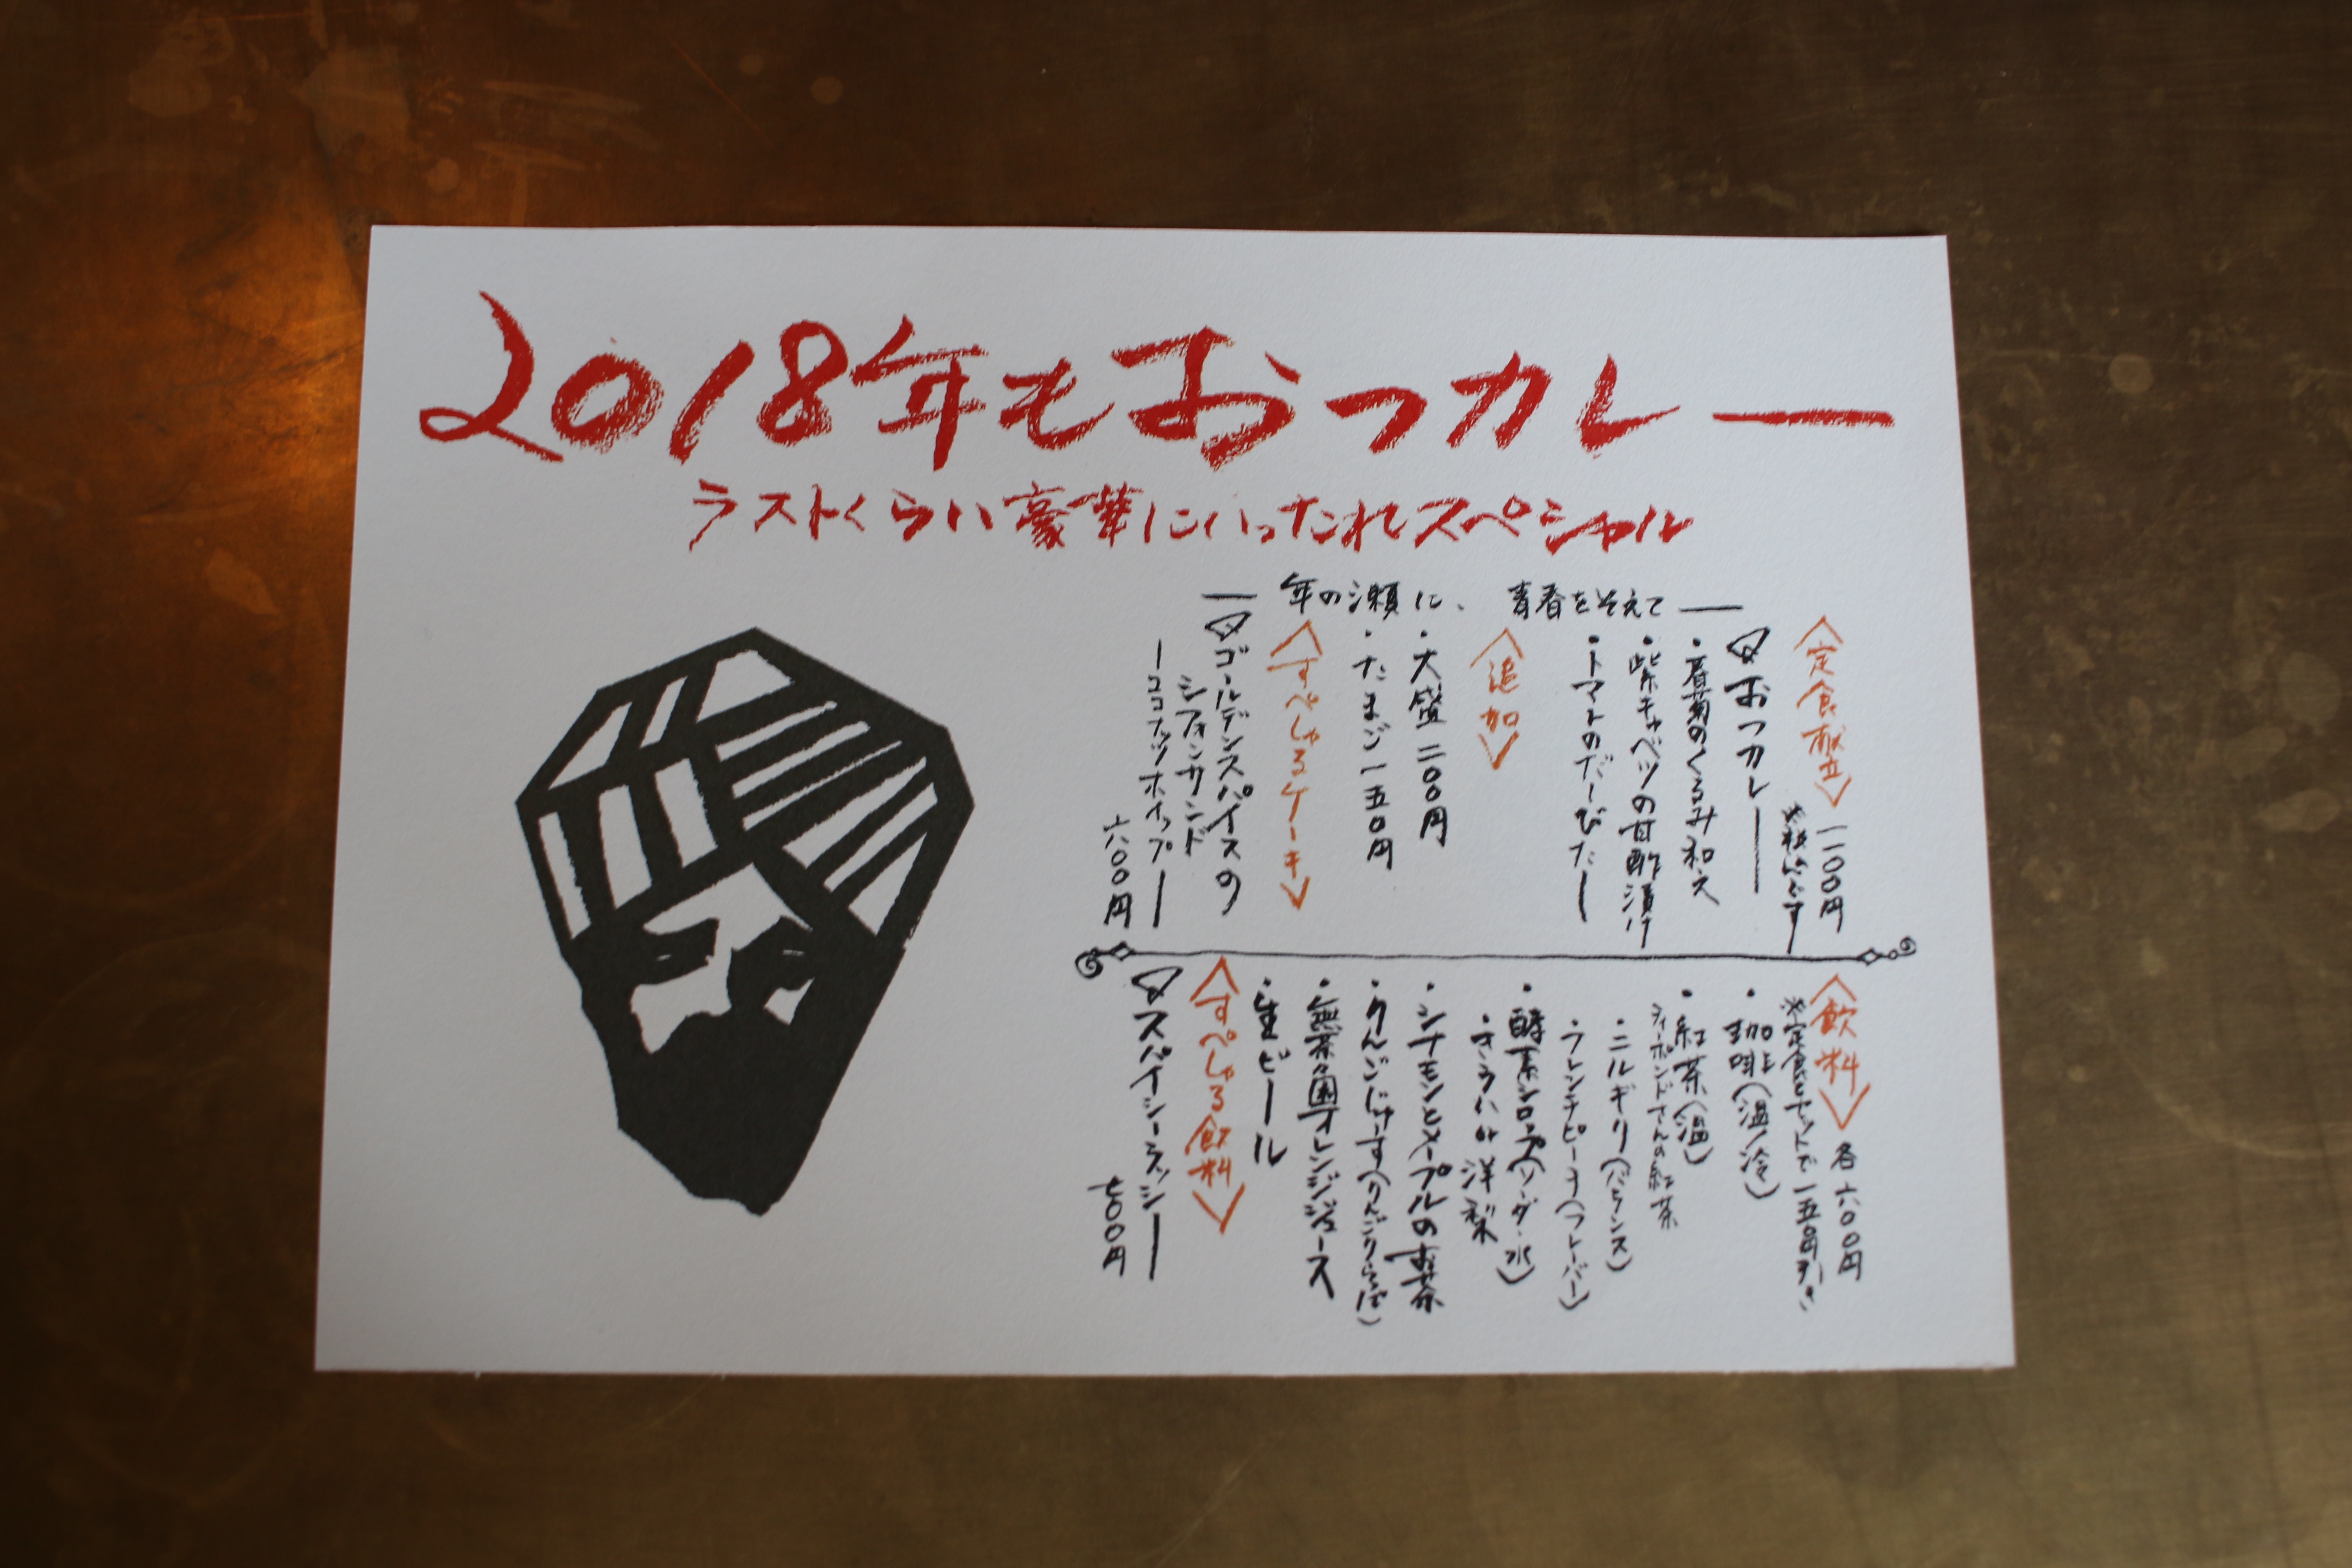 2018年もおつカレー
ラストくらい豪華にいったれスペシャル
― 年の瀬に、青春をそえて ―
〈定食献立〉 一一00円
おつカレー
・春菊のくるみ和え
・紫キャベツの甘酢漬け
・トマトのだしびたし
〈追加〉
・大盛 二00円
・たまご 一五0円
〈すぺしゃるケーキ〉
ゴールデンスパイスの
シフォンサンド
―ココナッツホイップ―
六00円
〈飲料〉 各六00円
※定食とセットで一五0円引き
・珈琲(温/冷)
・紅茶(温)
ティーポンドさんの紅茶
・ニルギリ(バランス)
・フレンチピーチ(フレーバー)
・酵素シロップ(ソーダ・水)
きうい or 洋梨
・シナモンとメープルのお茶
・りんごじゅーす(りんごりらっぱ)
・無茶々園オレンジジュース
・生ビール
〈すぺしゃる飲料〉
スパイシーラッシー
七00円